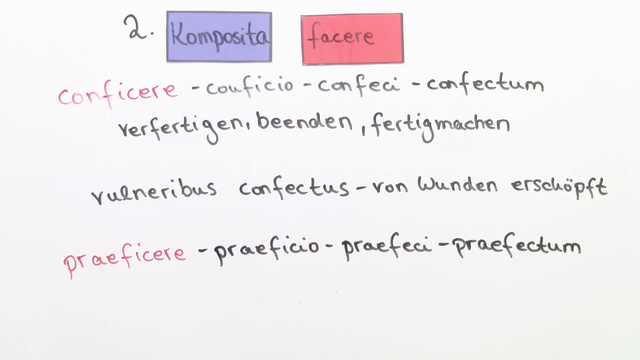 2. Komposita facere
conficere - conficio - confeci - confectum
verfertigen, beenden, fertigmachen
vulneribus confectus - von Wunden erschöpft
praeficere - praeficio - praefeci - praefectum